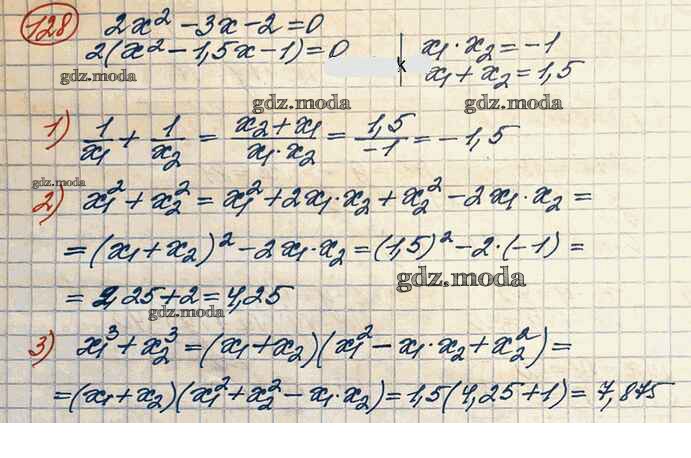 128 2x² - 3x - 2 = 0
2(x² - 1,5x - 1) = 0
x₁ · x₂ = -1
x₁ + x₂ = 1,5
gdz.moda
gdz.moda gdz.moda
1) 1/x₁ + 1/x₂ = (x₂ + x₁)/(x₁ · x₂) = 1,5/-1 = -1,5
gdz.moda
2) x₁² + x₂² = x₁² + 2x₁ · x₂ + x₂² - 2x₁ · x₂ =
= (x₁ + x₂)² - 2x₁ · x₂ = (1,5)² - 2 · (-1) =
gdz.moda
= 2,25 + 2 = 4,25
gdz.moda
3) x₁³ + x₂³ = (x₁ + x₂)(x₁² - x₁ · x₂ + x₂²) =
= (x₁ + x₂)(x₁² + x₂² - x₁ · x₂) = 1,5(4,25 + 1) = 7,875